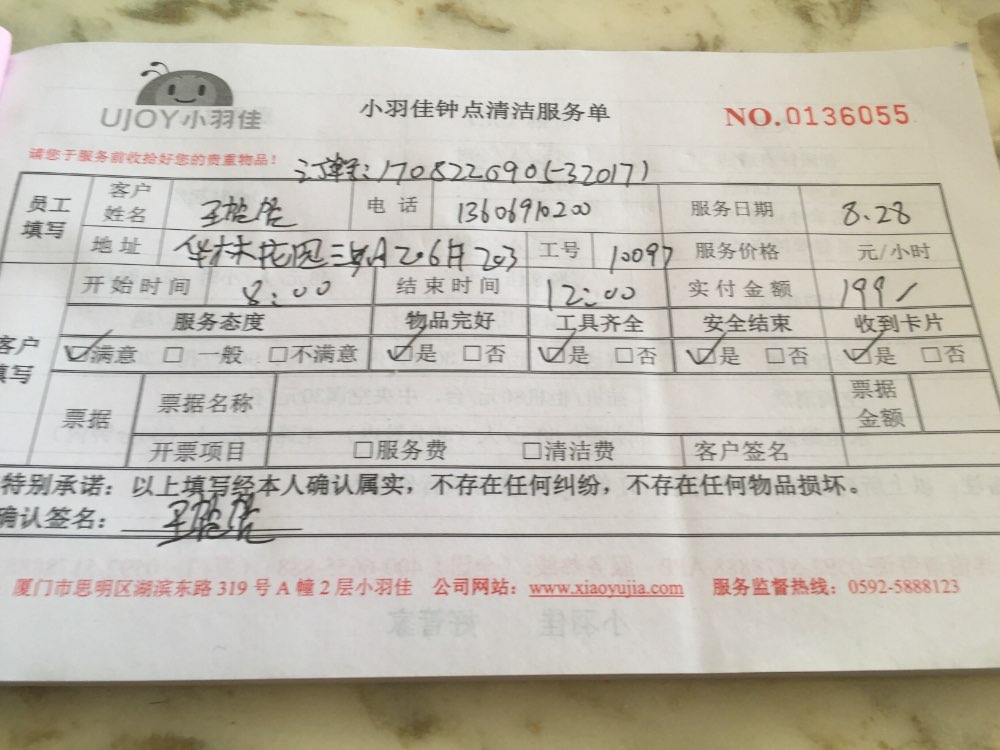 UJOY小羽佳
小羽佳钟点清洁服务单
NO.0136055
请您于服务前收拾好您的贵重物品！
1708226905320171
员工填写 客户姓名 电话 13606910200 服务日期 8.28
地址 华林花园 A206 203 工号 10097 服务价格 元/小时
开始时间 8:00 结束时间 12:00 实付金额 199/
客户填写 服务态度 物品完好 工具齐全 安全结束 收到卡片
☑满意 □一般 □不满意 ☑是 □否 ☑是 □否 ☑是 □否 ☑是 □否
票据 票据名称 票据金额
开票项目 □服务费 □清洁费 客户签名
特别承诺：以上填写经本人确认属实，不存在任何纠纷，不存在任何物品损坏。
确认签名：
厦门市思明区湖滨东路 319 号 A 幢 2 层小羽佳 公司网站：www.xiaoyujia.com 服务监督热线：0592-5888123